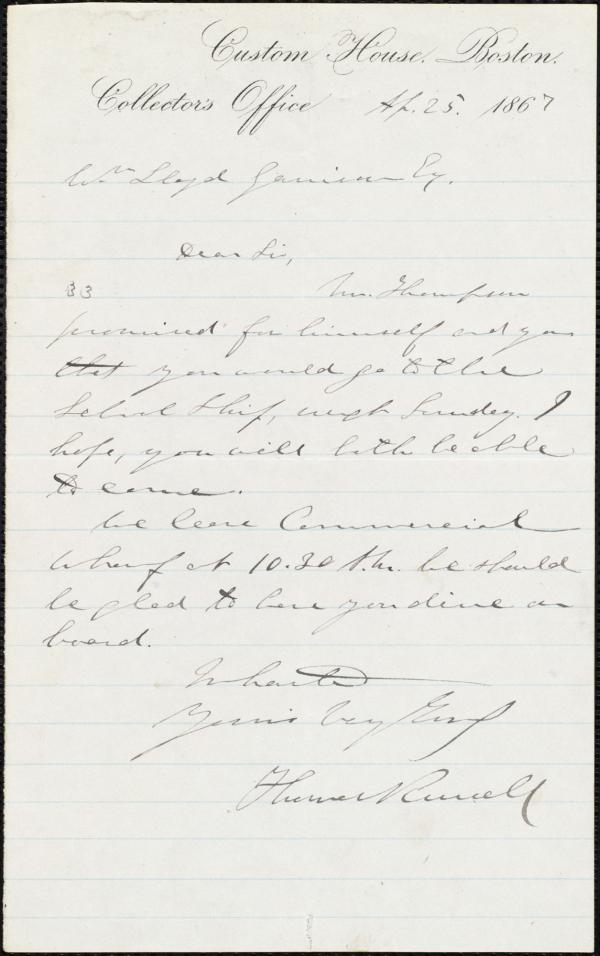 Custom House, Boston.
Collector's Office Ap. 25. 1867
Wm Lloyd Garrison Esq.
Dear Sir,
33 Mr. Thompson
promised for himself and you
that you would go to the
School Ship, next Sunday. I
hope, you will both be able
to come.
We leave Commercial
Wharf at 10.30 A.M. We should
be glad to have you dine on
board.
In haste
Yours Very Truly
Thomas Russell